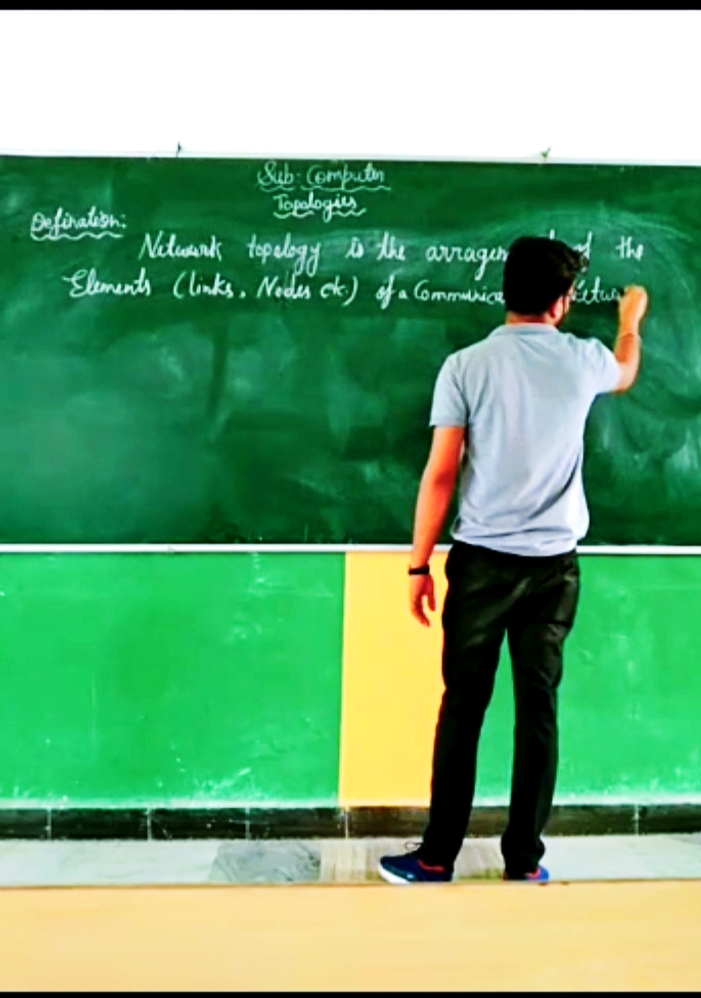 Sub: Computer
Topologies
Defination:
Network topology is the arragem of the
Elements (links, Nodes etc.) of a Communica